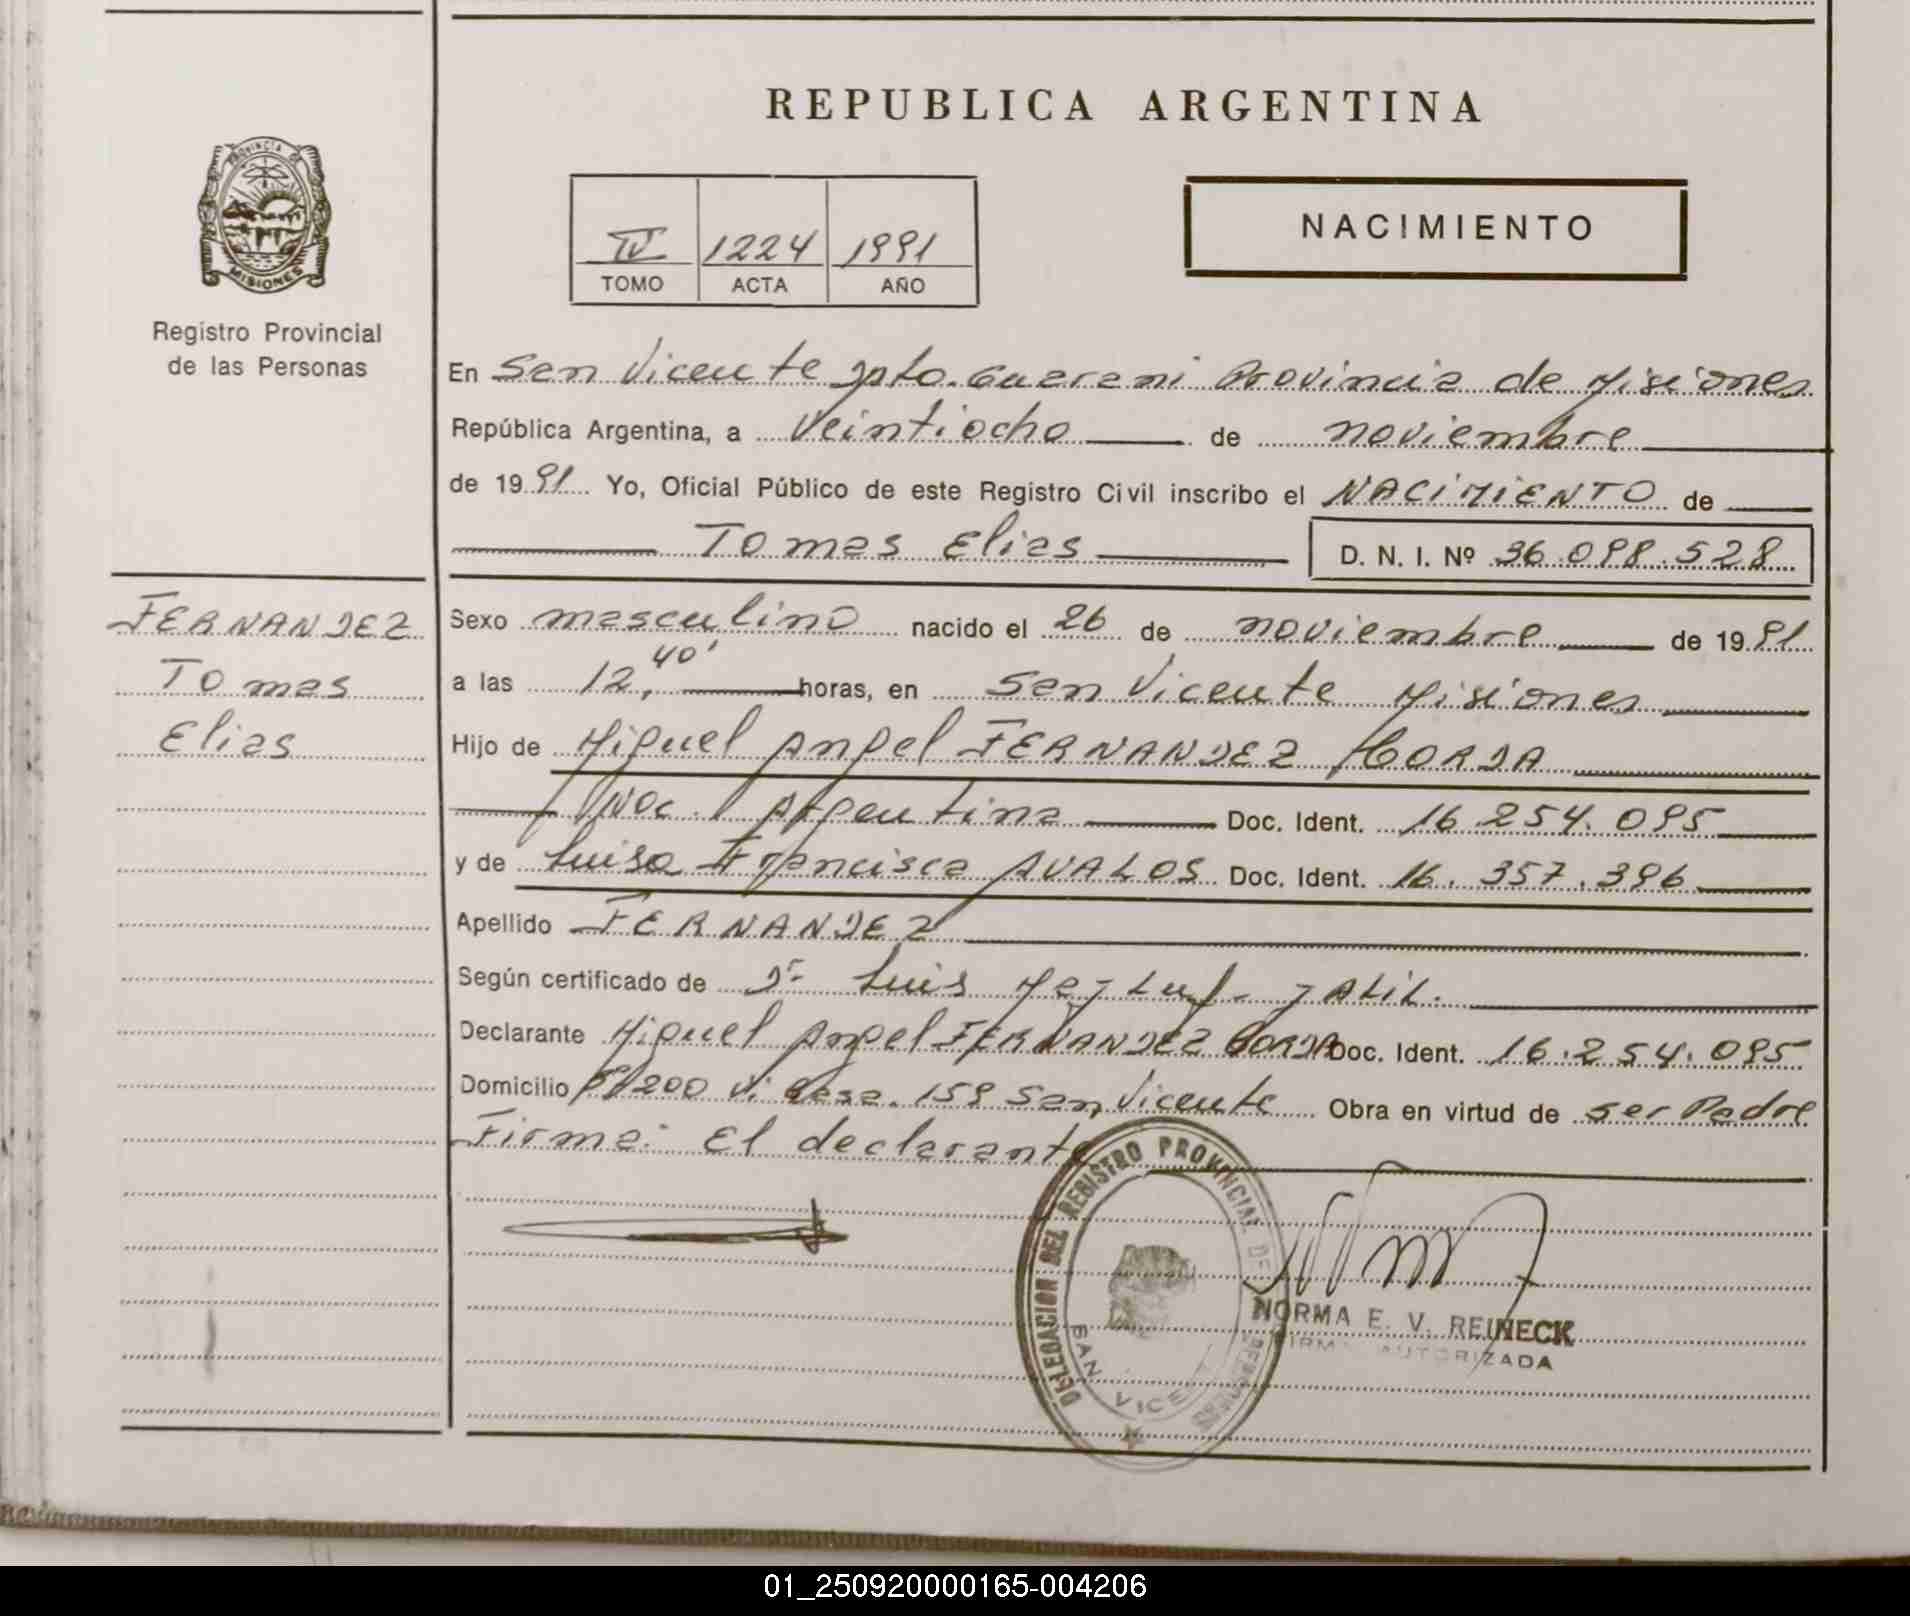 REPUBLICA ARGENTINA
PROVINCIA DE
MISIONES
Registro Provincial
de las Personas
IV 1224 1991
TOMO ACTA AÑO
NACIMIENTO
En San Vicente Dpto. Guarani Provincia de Misiones
República Argentina, a Veintiocho de noviembre
de 1991 Yo, Oficial Público de este Registro Civil inscribo el NACIMIENTO de
Tomas Elias D. N. I. Nº 36.098.528
FERNANDEZ
Tomas
Elias
Sexo masculino nacido el 26 de noviembre de 1991
a las 12,40' horas, en San Vicente Misiones
Hijo de Miguel Angel FERNANDEZ BORDA
Nac. Argentina Doc. Ident. 16.254.095
y de Luisa Francisca AVALOS Doc. Ident. 16.357.396
Apellido FERNANDEZ
Según certificado de Dr Luis JALIL.
Declarante Miguel Angel FERNANDEZ BORDA Doc. Ident. 16.254.095
Domicilio 200 Vi casa. 159 San Vicente Obra en virtud de ser Padre
Firma: El declarante
DELEGACION DEL REGISTRO PROVINCIAL DE
SAN VICENTE
NORMA E. V. REINECK
FIRMA AUTORIZADA
01_250920000165-004206